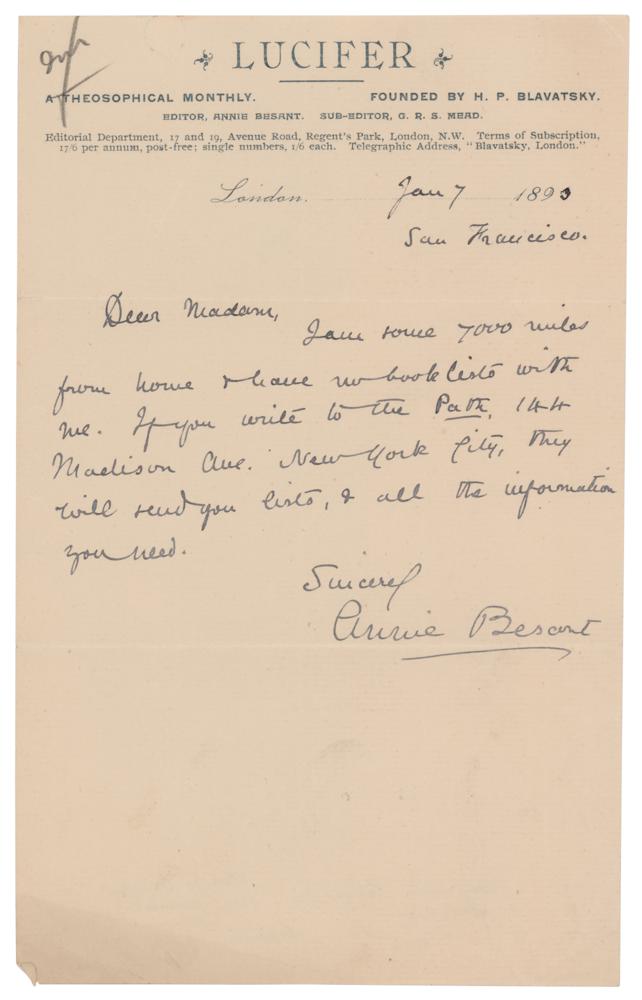 LUCIFER
A THEOSOPHICAL MONTHLY. FOUNDED BY H. P. BLAVATSKY.
EDITOR, ANNIE BESANT. SUB-EDITOR, G. R. S. MEAD.
Editorial Department, 17 and 19, Avenue Road, Regent's Park, London, N.W. Terms of Subscription,
17/6 per annum, post-free; single numbers, 1/6 each. Telegraphic Address, "Blavatsky, London."
London. Jan 7 1893
San Francisco.
Dear Madam,
I am some 7000 miles
from home & have no book lists with
me. If you write to the Path, 144
Madison Ave. New York City, they
will send you lists, & all the information
you need.
Sincerely
Annie Besant